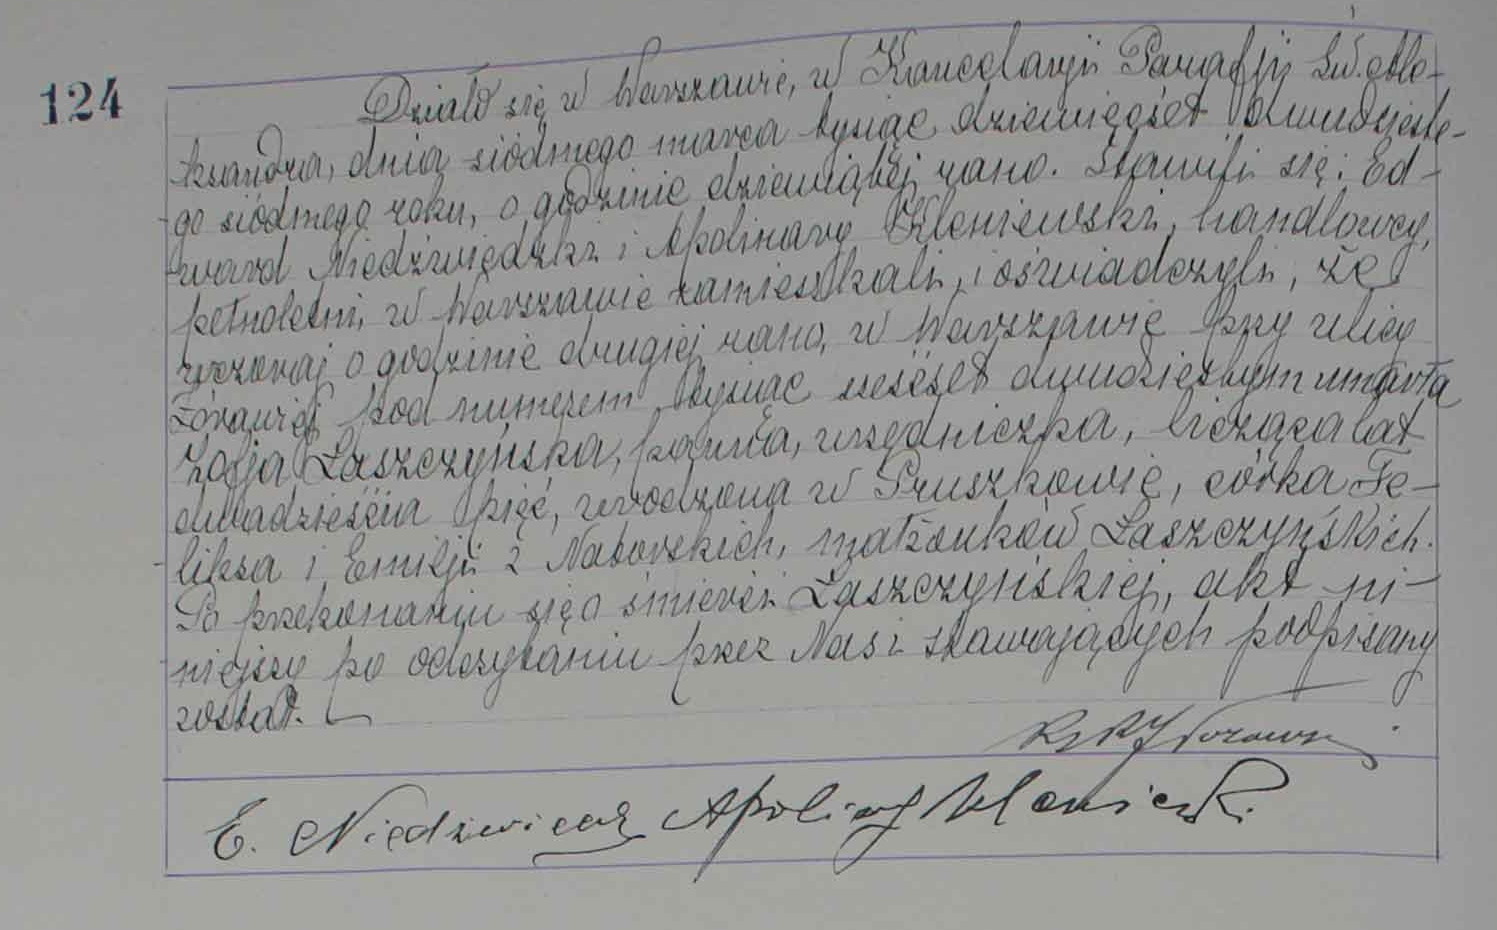 124
Działo się w Warszawie, w Kancelaryji Parafji Św. Ale-
ksandra, dnia siódmego marca tysiąc dziewięćset dwudzieste-
go siódmego roku, o godzinie dziewiątej rano. Stawili się: Ed-
ward Niedźwiedzki i Apolinary Kloniewski, handlowcy,
pełnoletni, w Warszawie zamieszkali, i oświadczyli, że
wczoraj o godzinie drugiej rano, w Warszawie przy ulicy
Żórawiej pod numerem tysiąc sześćset dwudziestym umarła
Zofja Łaszczyńska, panna, urzędniczka, licząca lat
dwadzieścia pięć, urodzona w Pruszkowie, córka Fe-
liksa i Emilji z Naborskich, małżonków Łaszczyńskich.
Po przekonaniu się o śmierci Łaszczyńskiej, akt ni-
niejszy po odczytaniu przez Nas i stawających podpisany
został.
E. Niedźwiedz Apolinary